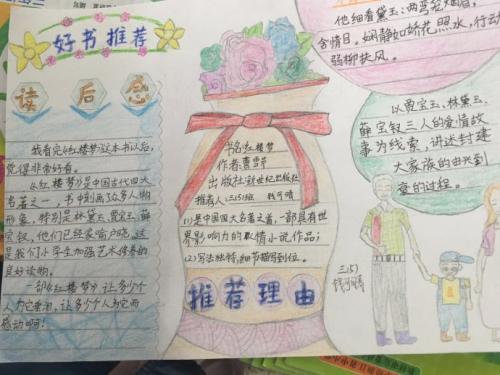 好书推荐
读后感
我看完《红楼梦》这本书以后,
觉得非常好看。
《红楼梦》是中国古代四大
名著之一,书中刻画了众多人物
形象,特别是林黛玉、贾宝玉、薛
宝钗,他们已经家喻户晓,这
是我们小学生加强艺术修养的
良好读物。
一部《红楼梦》让多少个
人为它垂泪,让多少个人为它而
感动啊!
书名:红楼梦
作者:曹雪芹
出版社:新世纪出版社
推荐人:三(5)班 钱可晴
(1)是中国四大名著之首,一部具有世
界影响力的
小说作品;
(2)写法独特,细节描写到位。
推荐理由
他细看黛玉:两弯
含情目。娴静如娇花照水,行动
弱柳扶风。
以贾宝玉、林黛玉、
薛宝钗三人的爱情故
事为线索,讲述封建
大家族的由兴到
衰的过程。
三(5)
钱可晴